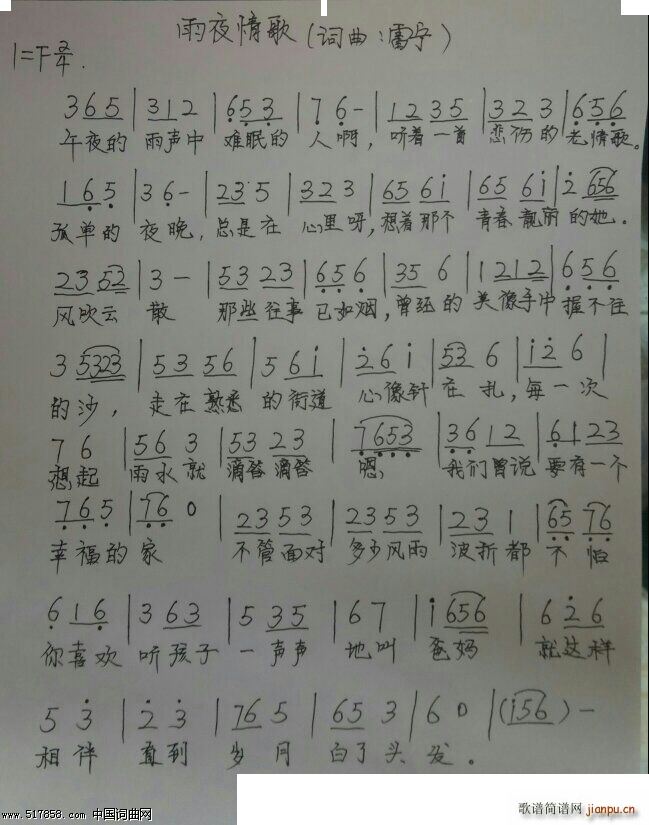 雨夜情歌(词曲:雷宇)
1=F 2/4.
3 6 5 | 3 1 2 | 6 5 3 | 7 6 - | 1 2 3 5 | 3 2 3 | 6 5 6
午夜的 雨声中 难眠的 人啊, 听着一首 悲伤的 老情歌。
1 6 5 | 3 6 - | 2 3 5 | 3 2 3 | 6 5 6 i | 6 5 6 i | 2 6 5 6
孤单的 夜晚, 总是在 心里呀, 想着那个 青春靓丽 的她.
2 3 5 2 | 3 - | 5 3 2 3 | 6 5 6 | 3 5 6 | 1 2 1 2 | 6 5 6
风吹云 散 那些往事 已如烟, 曾经的 美像手中 握不住
3 5 3 2 3 | 5 3 5 6 | 5 6 i | 2 6 i | 5 3 6 | i 2 6 |
的沙, 走在熟悉 的街道 心像针 在 扎, 每一次
7 6 | 5 6 3 | 5 3 2 3 | 7 6 5 3 | 3 6 1 2 | 6 1 2 3
想起 雨水就 滴答滴答 嗯, 我们曾说 要有一个
7 6 5 | 7 6 0 | 2 3 5 3 | 2 3 5 3 | 2 3 1 | 6 5 7 6
幸福的 家 不管面对 多少风雨 波折都 不 怕
6 1 6 | 3 6 3 | 5 3 5 | 6 7 | i 6 5 6 | 6 2 6
你喜欢 听孩子 一声声 地叫 爸妈 就这样
5 3 | 2 3 | 7 6 5 | 6 5 3 | 6 0 | (i 5 6) -
相伴 直到 岁月 白了头 发。
www.517858.com 中国词曲网
歌谱简谱网
jianpu.cn